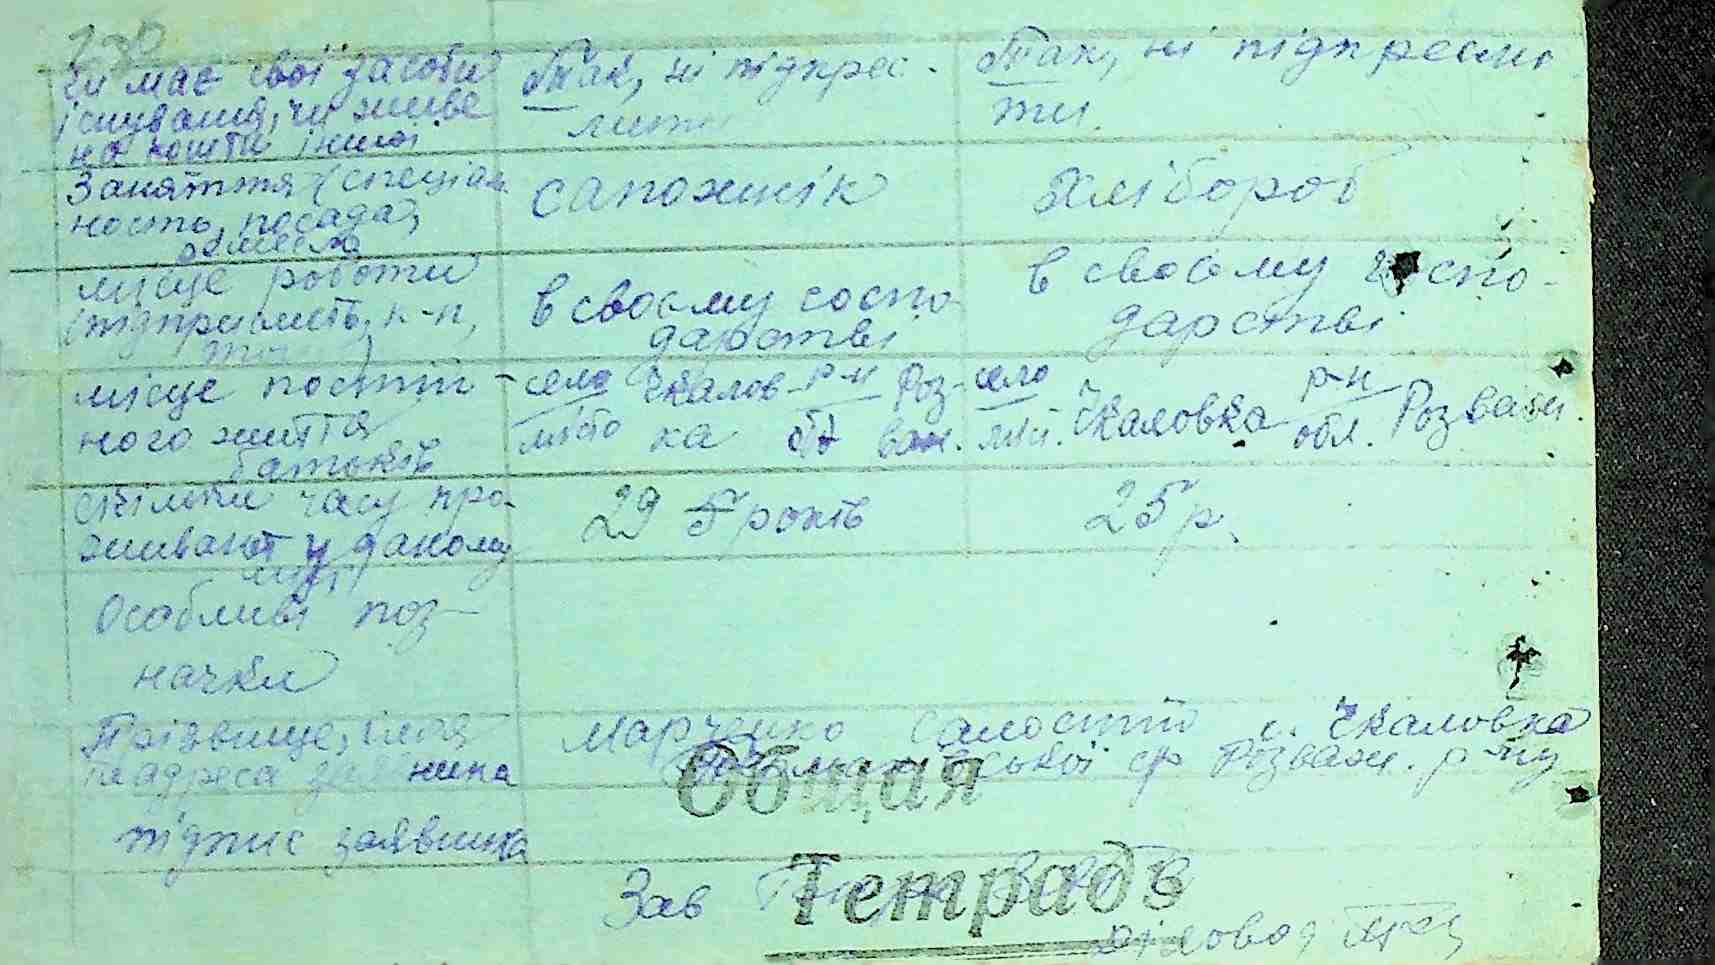 чи має свої засоби
існування, чи живе
на кошти іншої
Так, ні підкрес-
лити
Так, ні підкресли
ти.
Заняття (спеціаль
ность, посада,
ремесло
сапожнік
хлібороб
місце роботи
(підприємств, к-п,
в своєму госпо
дарстві
в своєму госпо-
дарстві
місце постій-
ного життя
батьків
село Чкалов- р-н Роз-
місто ка важ.
село Чкаловка р-н Розваж.
обл.
скільки часу про-
живают у даному
місці
29 років
25 р.
Особливі поз-
начки
Прізвище, імя
та адреса заявника
Марченко с. Чкаловка
Розваж. р-ну
підпис заявника
Общая
Зав
Тетрадь
діловод